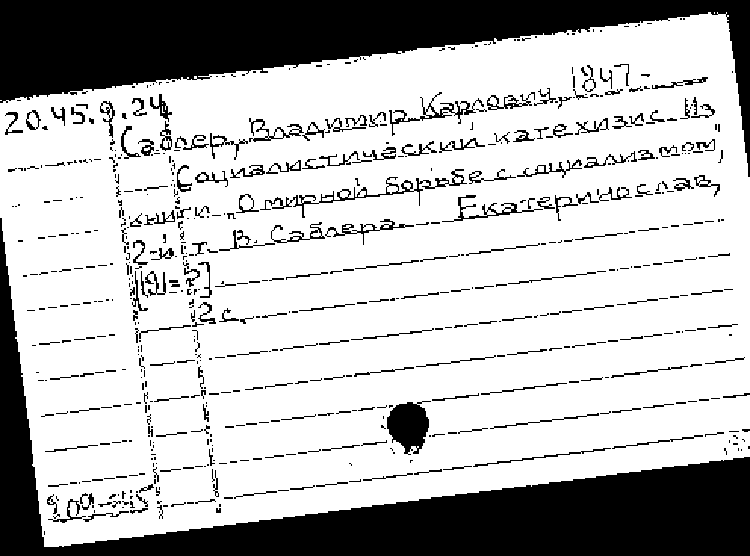 20.45.9.24
Саблер, Владимир Карлович, 1847-
Социалистический катехизис. Из
книги „О мирной борьбе с социализмом",
2-й т. В. Саблера. Екатеринослав,
[191=?]
2 с.